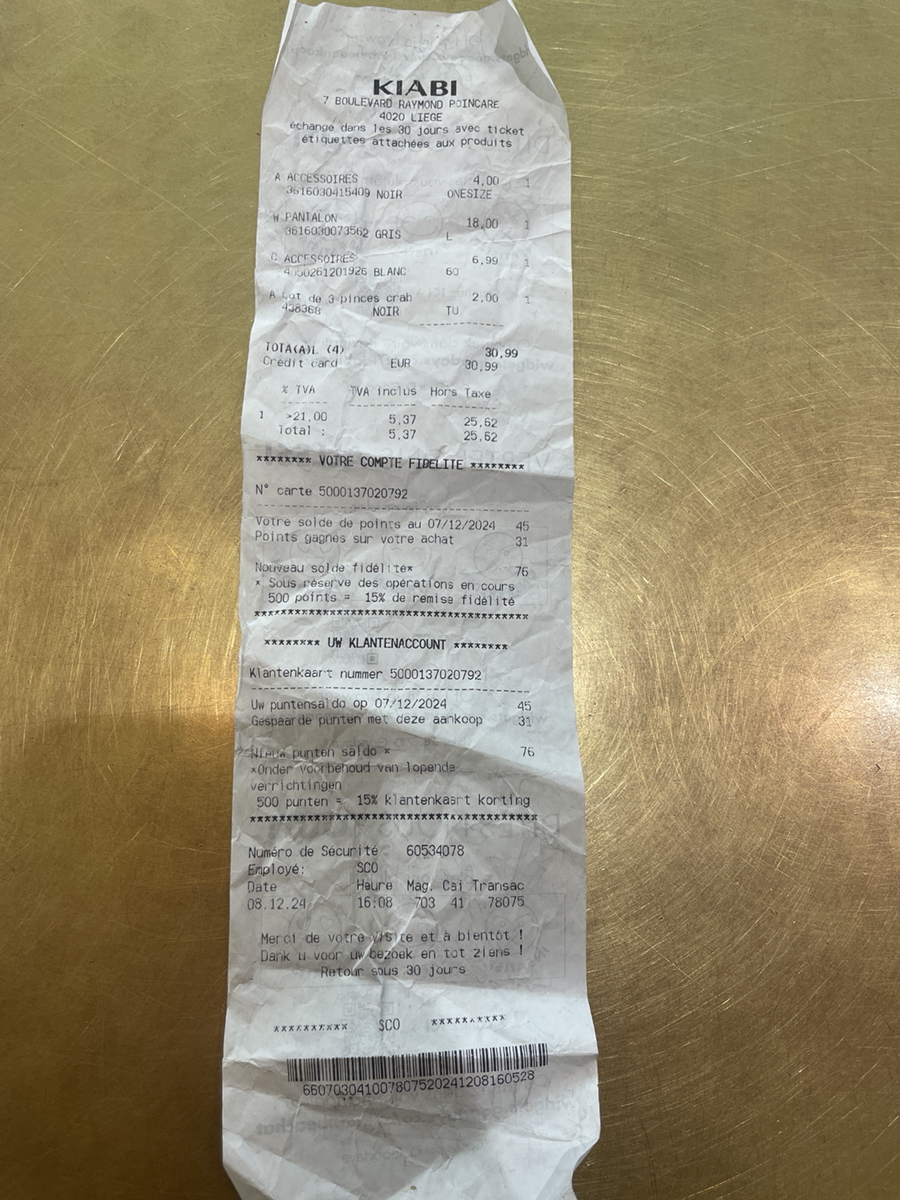 KIABI
7 BOULEVARD RAYMOND POINCARE
4020 LIEGE
échange dans les 30 jours avec ticket
étiquettes attachées aux produits
A ACCESSOIRES 4,00 1
3616030415409 NOIR ONESIZE
W PANTALON 18,00 1
3616030073562 GRIS L
ACCESSOIRES 6,99 1
BLANC 60
A Lot de 3 pinces crab 2,00 1
438368 NOIR TU
TOTA(A)L (4) 30,99
Crédit card EUR 30,99
% TVA TVA inclus Hors Taxe
1 >21,00 5,37 25,62
Total : 5,37 25,62
******** VOTRE COMPTE FIDELITE ********
N° carte 5000137020792
Votre solde de points au 07/12/2024 45
Points gagnés sur votre achat 31
Nouveau solde fidélité* 76
* Sous réserve des opérations en cours
500 points = 15% de remise fidélité
****************************************
******** UW KLANTENACCOUNT ********
Klantenkaart nummer 5000137020792
Uw puntensaldo op 07/12/2024 45
Gespaarde punten met deze aankoop 31
Nieuw punten saldo * 76
*Onder voorbehoud van lopende
verrichtingen
500 punten = 15% klantenkaart korting
****************************************
Numéro de Sécurité 60534078
Employé: SCO
Date Heure Mag. Cai Transac
08.12.24 16:08 703 41 78075
Merci de votre visite et à bientôt !
Dank u voor uw bezoek en tot ziens !
Retour sous 30 jours
********** SCO **********
660703041007807520241208160528